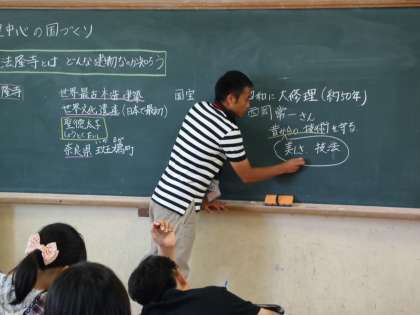 中心の国づくり
法隆寺とは どんな建物なのか知ろう
隆寺 世界最古木造建築 国宝
世界文化遺産(日本で最初)
聖徳太子
しょうとくたいし
奈良県 斑鳩町
昭和に大修理(約50年)
西岡常一さん
昔からの技術を守る
美しさ 技法